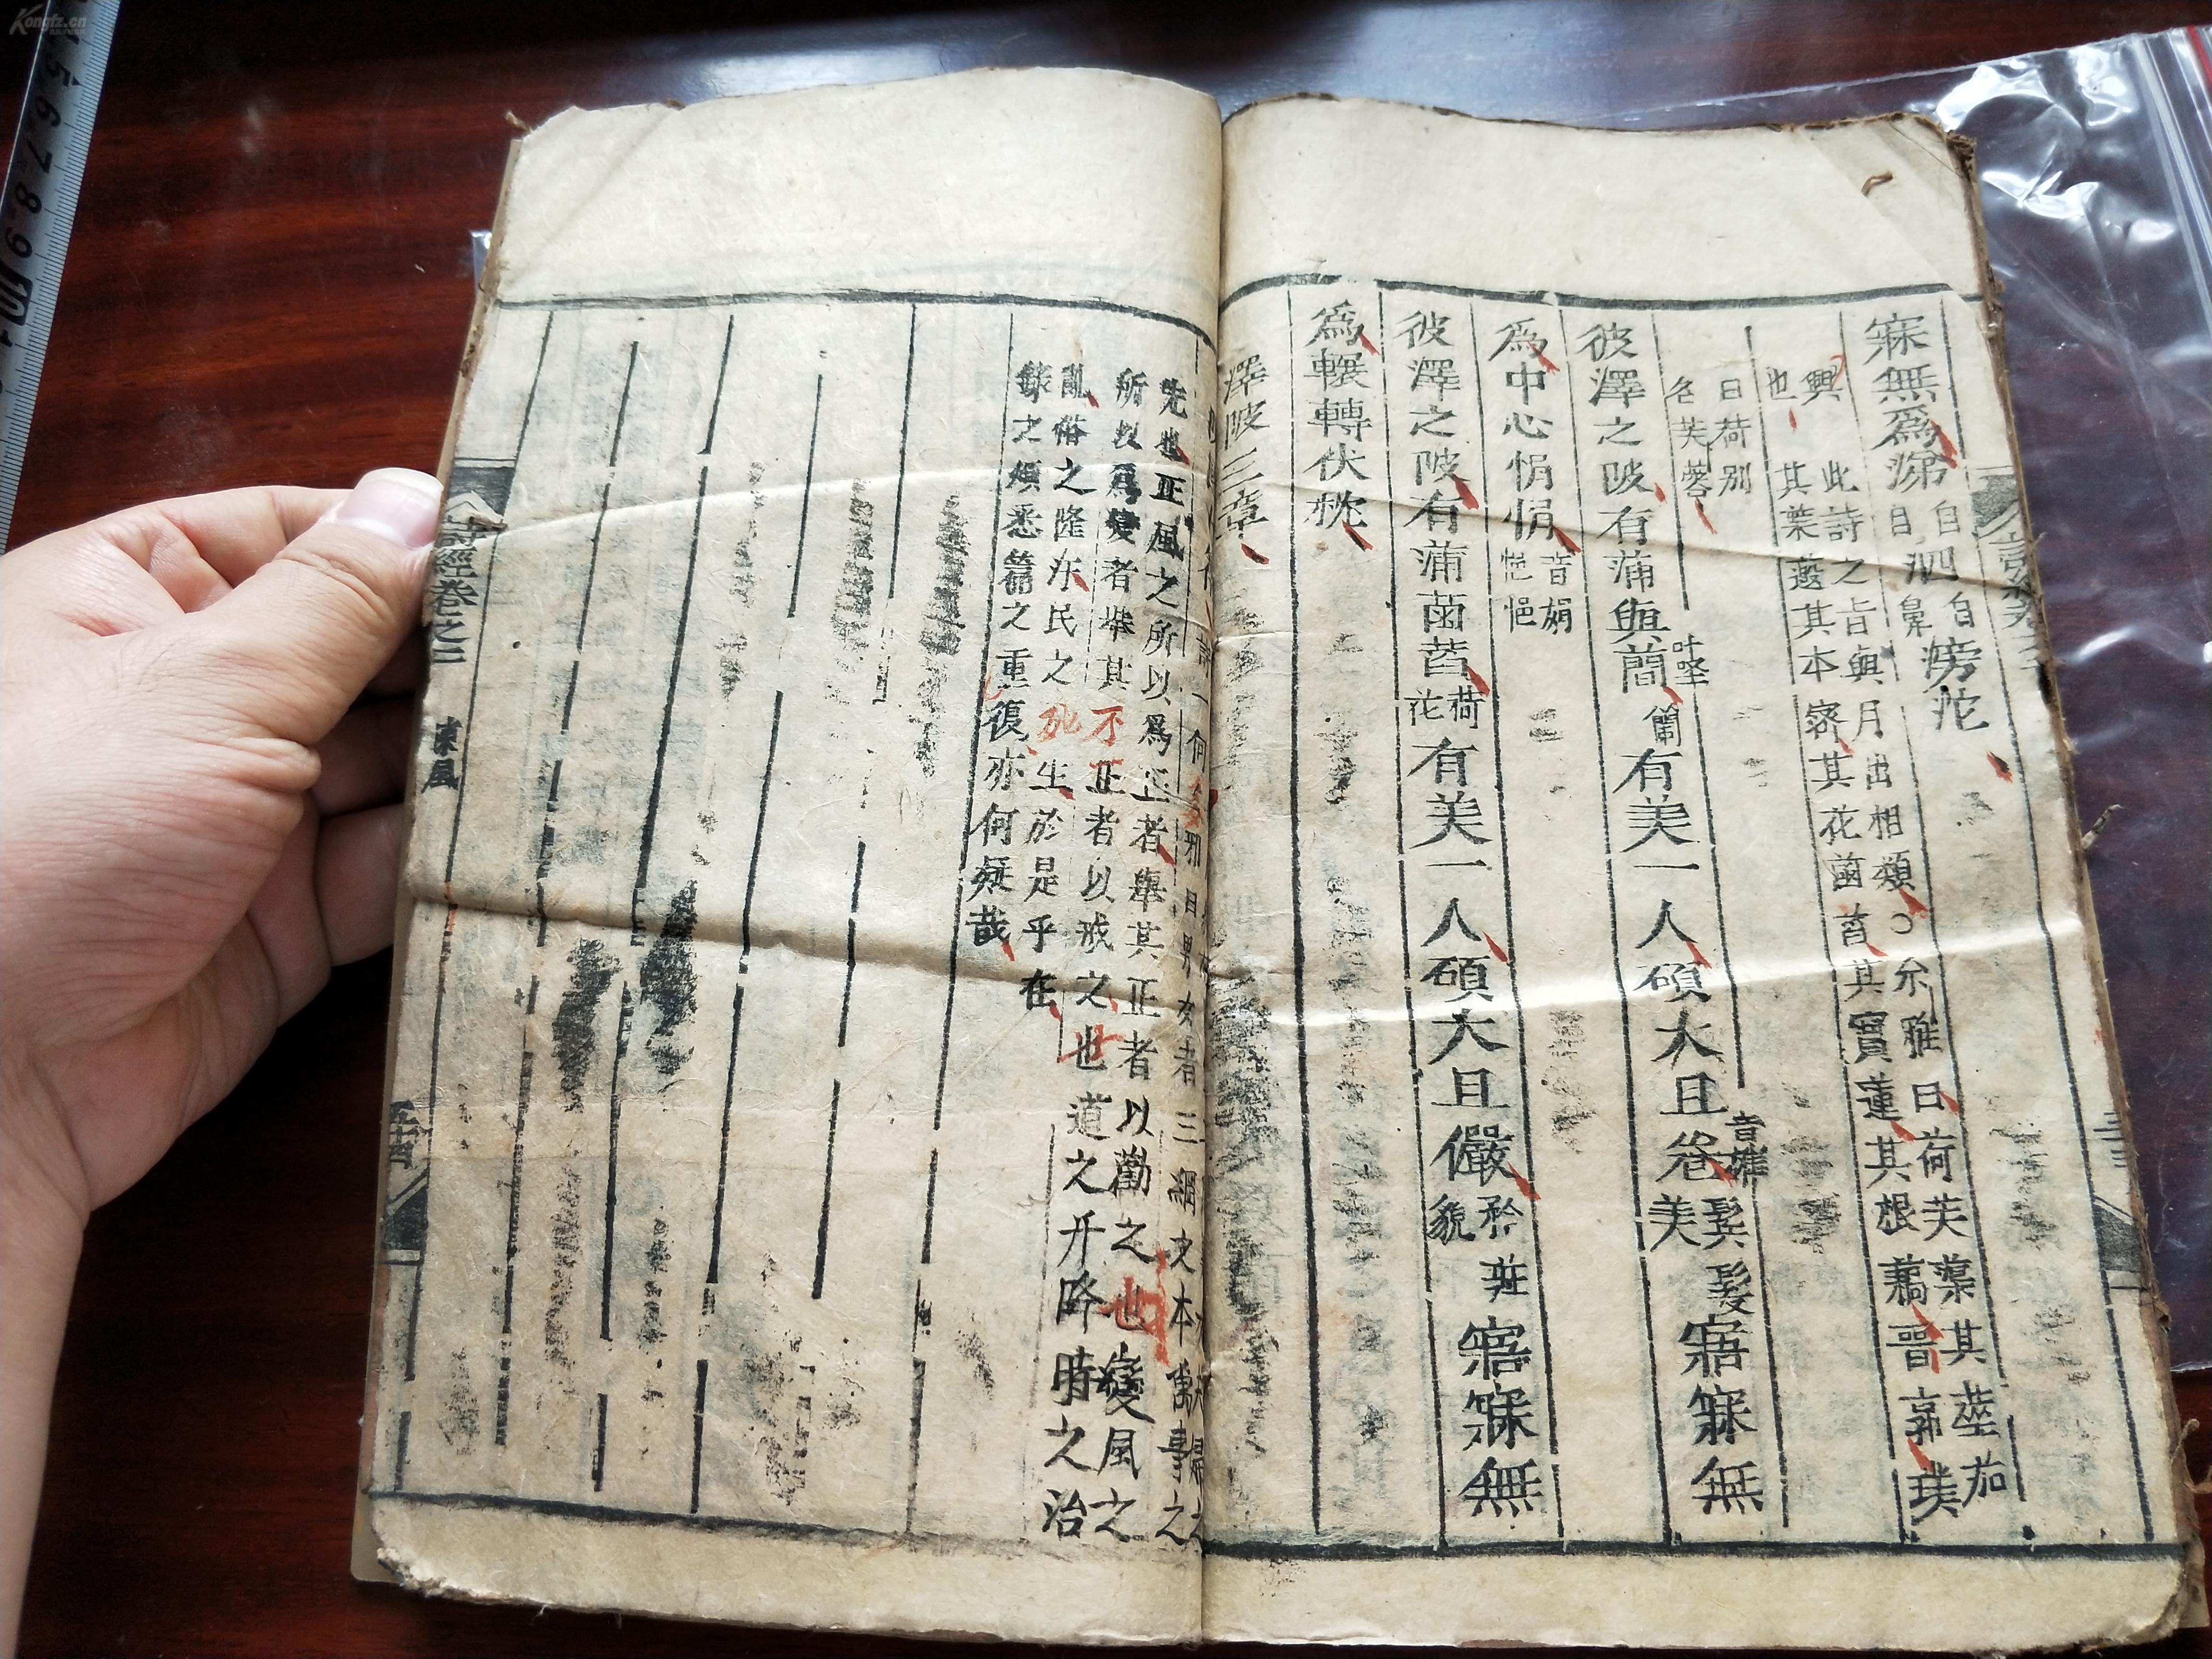 寐無爲涕自目泗自鼻滂沱
興也 此詩之旨與月出相類〇尒雅曰荷芙蕖其莖茄
其葉蕸其本蔤其花菡萏其實蓮其根藕晉郭璞
曰荷別名芙蓉
彼澤之陂有蒲與蕑叶坚蘭有美一人碩大且卷音權鬂髮美寤寐無
爲中心悁悁音娟悒悒
彼澤之陂有蒲菡萏荷花有美一人碩大且儼矜莊貌寤寐無
爲輾轉伏枕
澤陂三章
何邪曰男女者三綱之本萬事之
先也正風之所以爲正者舉其正者以勸之也變風之
所以爲變者舉其不正者以戒之也道之升降時之治
亂俗之隆污民之死生於是乎在
錄之煩悉篇之重復亦何疑哉
詩經卷之二 陳風
Kongfz.cn
5 6 7 8 9